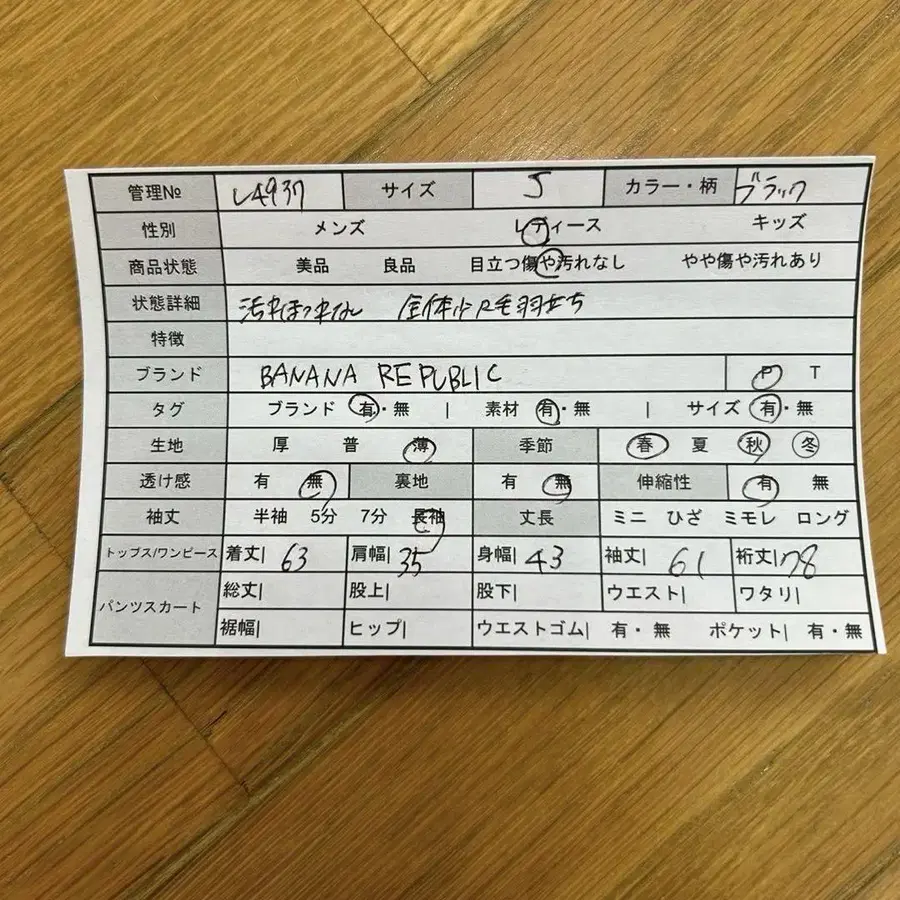 管理№ L4937 サイズ S カラー・柄 ブラック
性別 メンズ レディース キッズ
商品状態 美品 良品 目立つ傷や汚れなし やや傷や汚れあり
状態詳細 汚れほつれなし 全体少し毛羽立ち
特徴
ブランド BANANA REPUBLIC P T
タグ ブランド 有・無 | 素材 有・無 | サイズ 有・無
生地 厚 普 薄 季節 春 夏 秋 冬
透け感 有 無 裏地 有 無 伸縮性 有 無
袖丈 半袖 5分 7分 長袖 丈長 ミニ ひざ ミモレ ロング
トップス/ワンピース 着丈| 63 肩幅| 35 身幅| 43 袖丈| 61 裄丈| 78
パンツスカート 総丈| 股上| 股下| ウエスト| ワタリ|
裾幅| ヒップ| ウエストゴム| 有・無 ポケット| 有・無